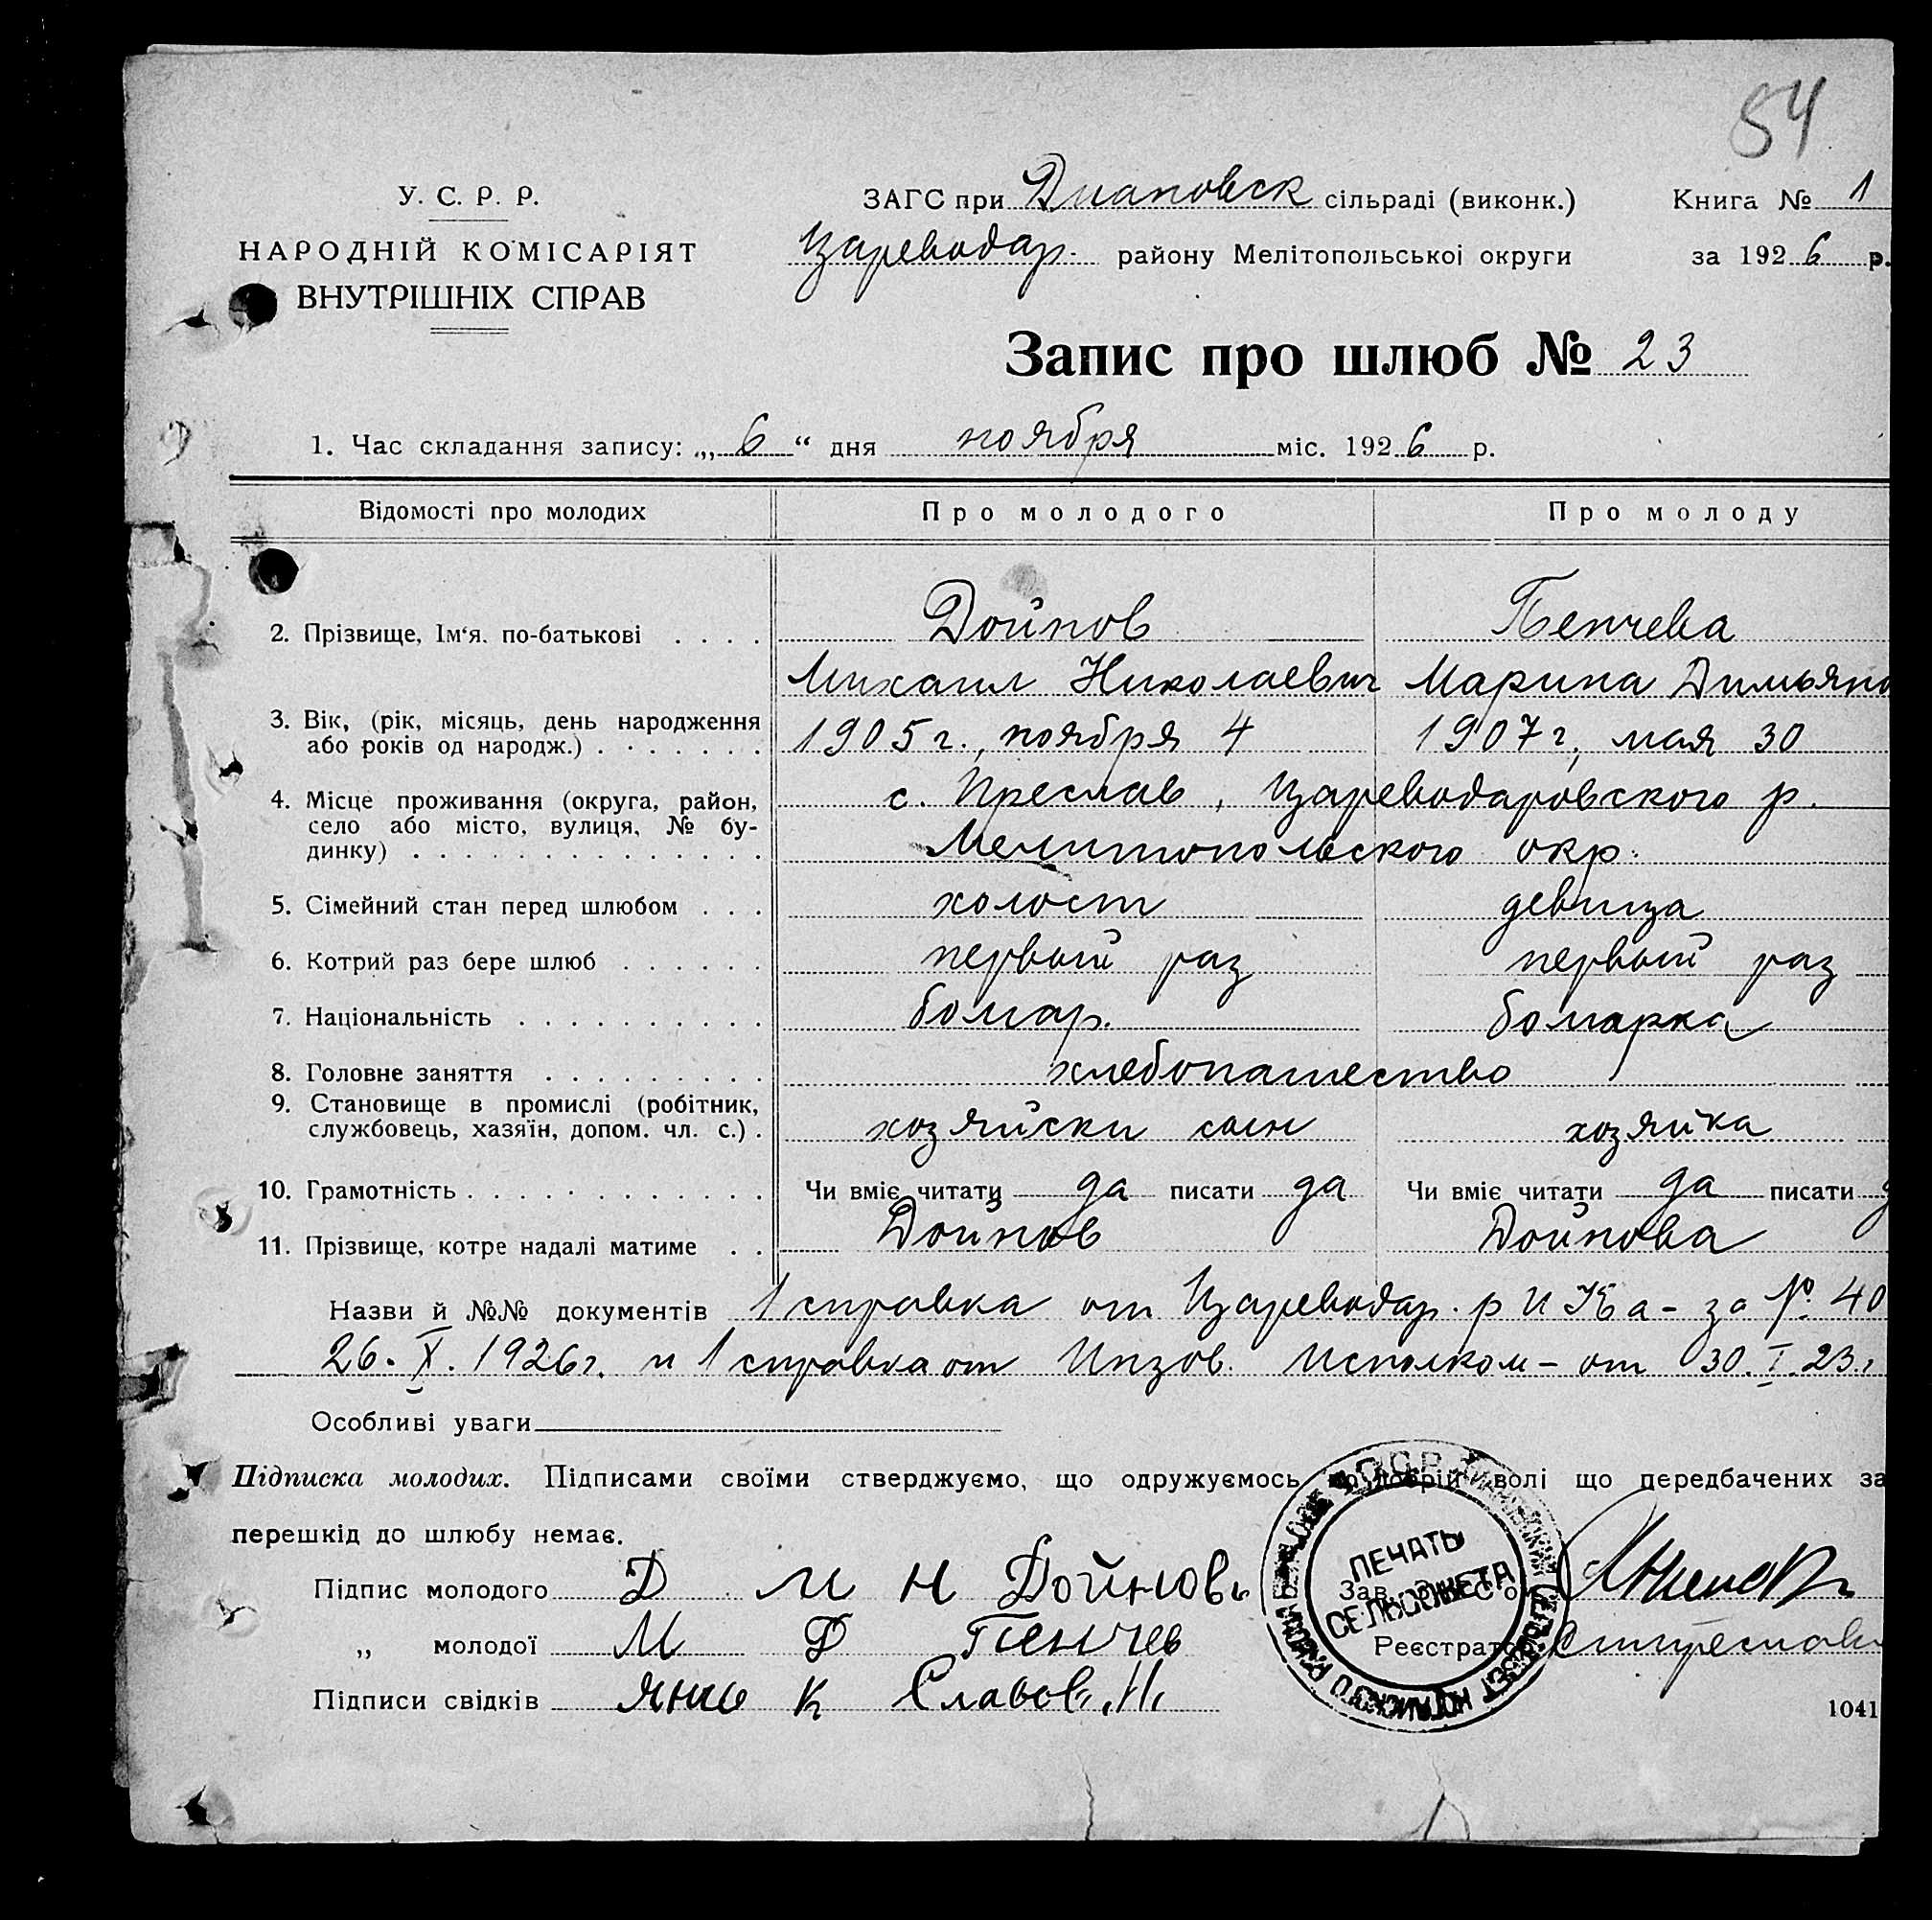 54
У. С. Р. Р.
НАРОДНІЙ КОМІСАРІЯТ
ВНУТРІШНІХ СПРАВ
ЗАГС при Диановск сільраді (виконк.)
Книга № 1
Цареводар. району Мелітопольської округи
за 1926 р.
Запис про шлюб № 23
1. Час складання запису: „ 6 “ дня ноября міс. 1926 р.
Відомості про молодих Про молодого Про молоду
2. Прізвище, Ім'я, по-батькові . . . . Дойнов Пенчева
Михаил Николаевич Марина Димьяно
3. Вік, (рік, місяць, день народження
або років од народж.) . . . . . . . 1905 г., ноября 4 1907 г, мая 30
4. Місце проживання (округа, район,
село або місто, вулиця, № бу-
динку) . . . . . . . . . . . . . .
с. Преслав, Цареводаровского р.
Мелитопольского окр.
5. Сімейний стан перед шлюбом . . . холост девица
6. Котрий раз бере шлюб . . . . . . первый раз первый раз
7. Національність . . . . . . . . . . болгар. болгарка
8. Головне заняття . . . . . . . . . хлебопашество
9. Становище в промислі (робітник,
службовець, хазяїн, допом. чл. с.) . хозяйски сын хозяйка
10. Грамотність . . . . . . . . . . . . Чи вміє читати да писати да Чи вміє читати да писати
11. Прізвище, котре надалі матиме . . Дойнов Дойнова
Назви й №№ документів 1 справка от Цареводар. рИКа - за №. 40
26. X. 1926 г. и 1 справка от Инзов. Исполком - от 30. I. 23. г
Особливі уваги
Підписка молодих. Підписами своїми стверджуємо, що одружуємось по добрій волі що передбачених за
перешкід до шлюбу немає.
Підпис молодого Д М Н Дойновъ
Зав. ЗАГС'ом
„ молодої М Д Пенчев
Реєстратор
Підписи свідків К Славов
ПЕЧАТЬ
СЕЛЬСОВЕТА
1041